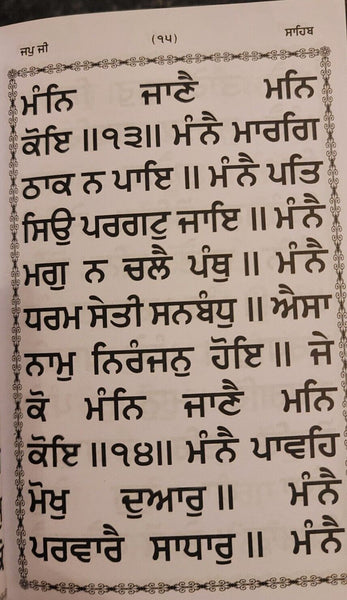 ਜਪੁ ਜੀ (੧੫) ਸਾਹਿਬ
ਮੰਨਿ ਜਾਣੈ ਮਨਿ
ਕੋਇ ॥੧੩॥ ਮੰਨੈ ਮਾਰਗਿ
ਠਾਕ ਨ ਪਾਇ ॥ ਮੰਨੈ ਪਤਿ
ਸਿਉ ਪਰਗਟੁ ਜਾਇ ॥ ਮੰਨੈ
ਮਗੁ ਨ ਚਲੈ ਪੰਥੁ ॥ ਮੰਨੈ
ਧਰਮ ਸੇਤੀ ਸਨਬੰਧੁ ॥ ਐਸਾ
ਨਾਮੁ ਨਿਰੰਜਨੁ ਹੋਇ ॥ ਜੇ
ਕੋ ਮੰਨਿ ਜਾਣੈ ਮਨਿ
ਕੋਇ ॥੧੪॥ ਮੰਨੈ ਪਾਵਹਿ
ਮੋਖੁ ਦੁਆਰੁ ॥ ਮੰਨੈ
ਪਰਵਾਰੈ ਸਾਧਾਰੁ ॥ ਮੰਨੈ